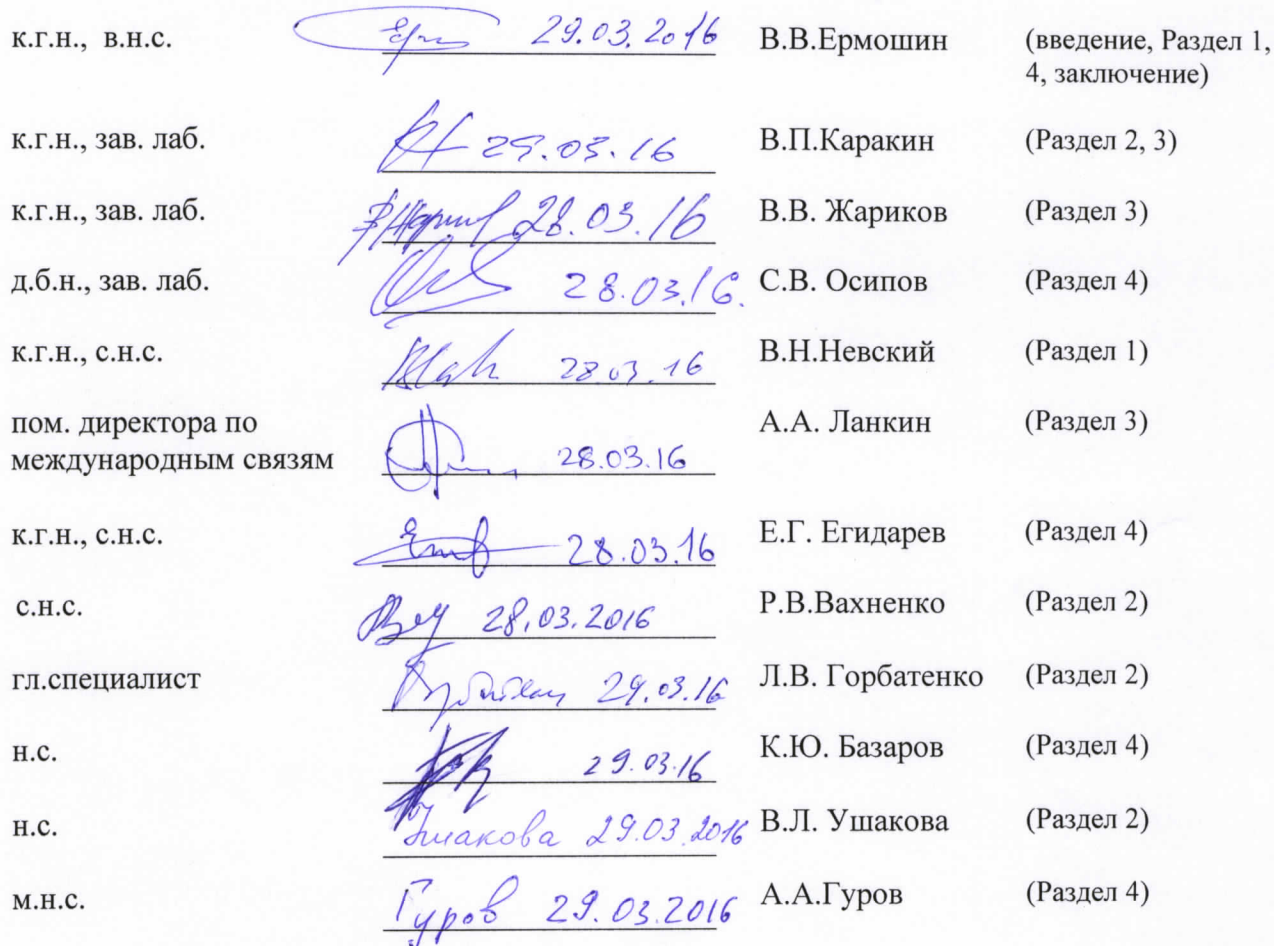 к.г.н., в.н.с. 29.03.2016 В.В.Ермошин (введение, Раздел 1,
4, заключение)
к.г.н., зав. лаб. 29.03.16 В.П.Каракин (Раздел 2, 3)
к.г.н., зав. лаб. 28.03.16 В.В. Жариков (Раздел 3)
д.б.н., зав. лаб. 28.03.16. С.В. Осипов (Раздел 4)
к.г.н., с.н.с. 28.03.16 В.Н.Невский (Раздел 1)
пом. директора по А.А. Ланкин (Раздел 3)
международным связям 28.03.16
к.г.н., с.н.с. 28.03.16 Е.Г. Егидарев (Раздел 4)
с.н.с. 28.03.2016 Р.В.Вахненко (Раздел 2)
гл.специалист 29.03.16 Л.В. Горбатенко (Раздел 2)
н.с. 29.03.16 К.Ю. Базаров (Раздел 4)
н.с. Ушакова 29.03.2016 В.Л. Ушакова (Раздел 2)
м.н.с. Гуров 29.03.2016 А.А.Гуров (Раздел 4)